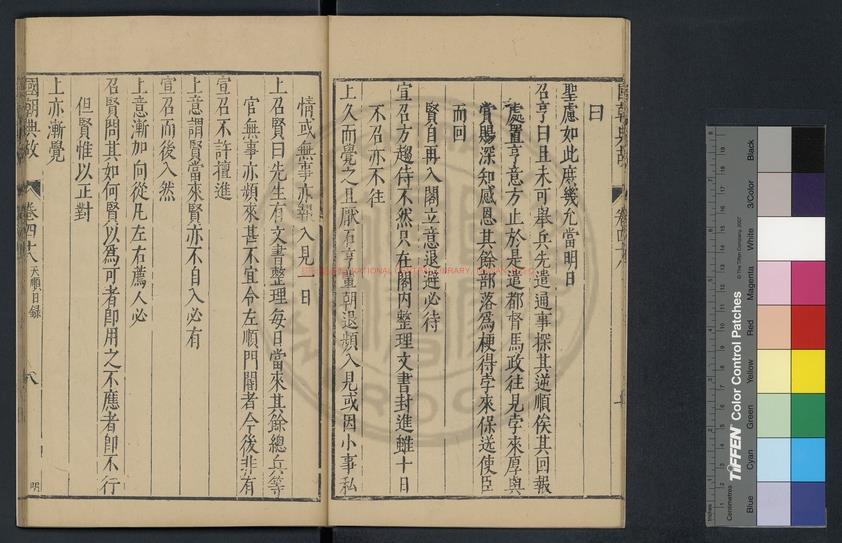 曰
聖慮如此庶幾允當明日
召亨曰且未可舉兵先遣通事探其逆順俟其回報
處置亨意方止於是遣都督馬政往見孛來厚與
賞賜深知感恩其餘部落為梗得孛來保送使臣
而回
賢自再入閣立意退避必待
宣召方趨侍不然只在閣內整理文書封進雖十日
不召亦不往
上久而覺之且厭石亨輩朝退頻入見或因小事私
情或無事亦報入見一日
上召賢曰先生有文書整理每日當來其餘總兵等
官無事亦頻來甚不宜令左順門閽者今後非有
宣召不許擅進
上意謂賢當來賢亦不自入必有
宣召而後入然
上意漸加向從凡左右薦人必
召賢問其如何賢以為可者即用之不應者即不行
但賢惟以正對
上亦漸覺
國朝典故
卷四十八
天順日錄
八
明
國朝典故
卷四十八
NATIONAL CENTRAL LIBRARY
TIFFEN Color Control Patches
© The Tiffen Company, 2007
Centimetres
Inches
Blue
Cyan
Green
Yellow
Red
Magenta
White
3/Color
Black